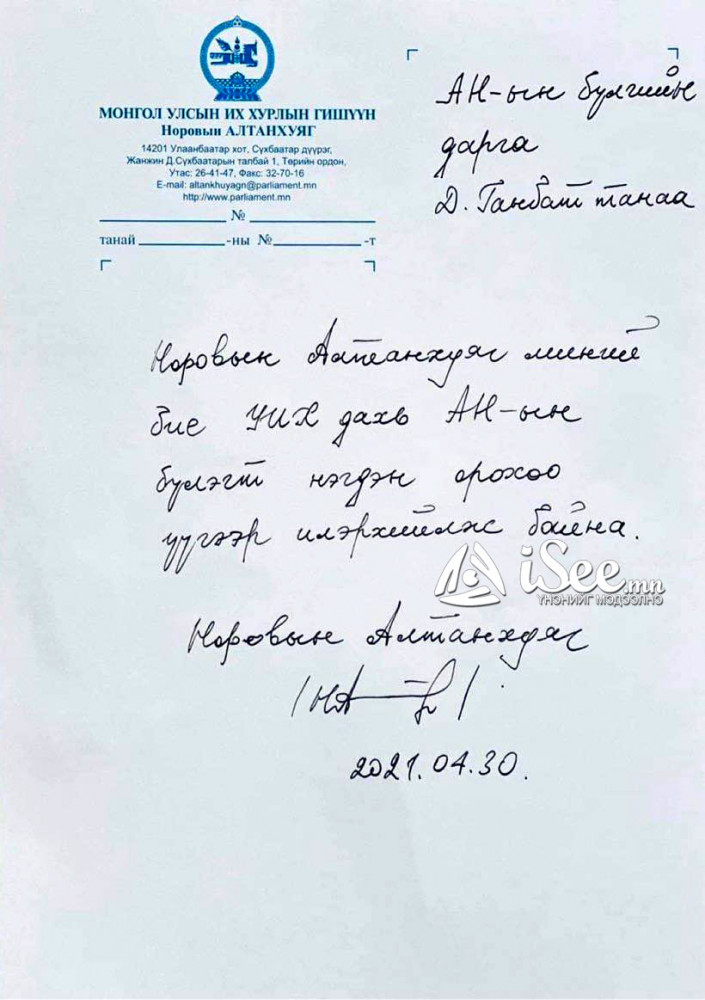 МОНГОЛ УЛСЫН ИХ ХУРЛЫН ГИШҮҮН
Норовын АЛТАНХУЯГ
14201 Улаанбаатар хот, Сүхбаатар дүүрэг,
Жанжин Д.Сүхбаатарын талбай 1, Төрийн ордон,
Утас: 26-41-47, Факс: 32-70-16
E-mail: altankhuyagn@parliament.mn
http://www.parliament.mn
№
танай -ны № -т
АН-ын бүлгийн
дарга
Д. Ганбат танаа
Норовын Алтанхуяг миний
бие УИХ дахь АН-ын
бүлэгт нэгдэн орохоо
үүгээр илэрхийлж байна.
iSee.mn
ҮНЭНИЙГ МЭДЭЭЛНЭ
Норовын Алтанхуяг
2021.04.30.